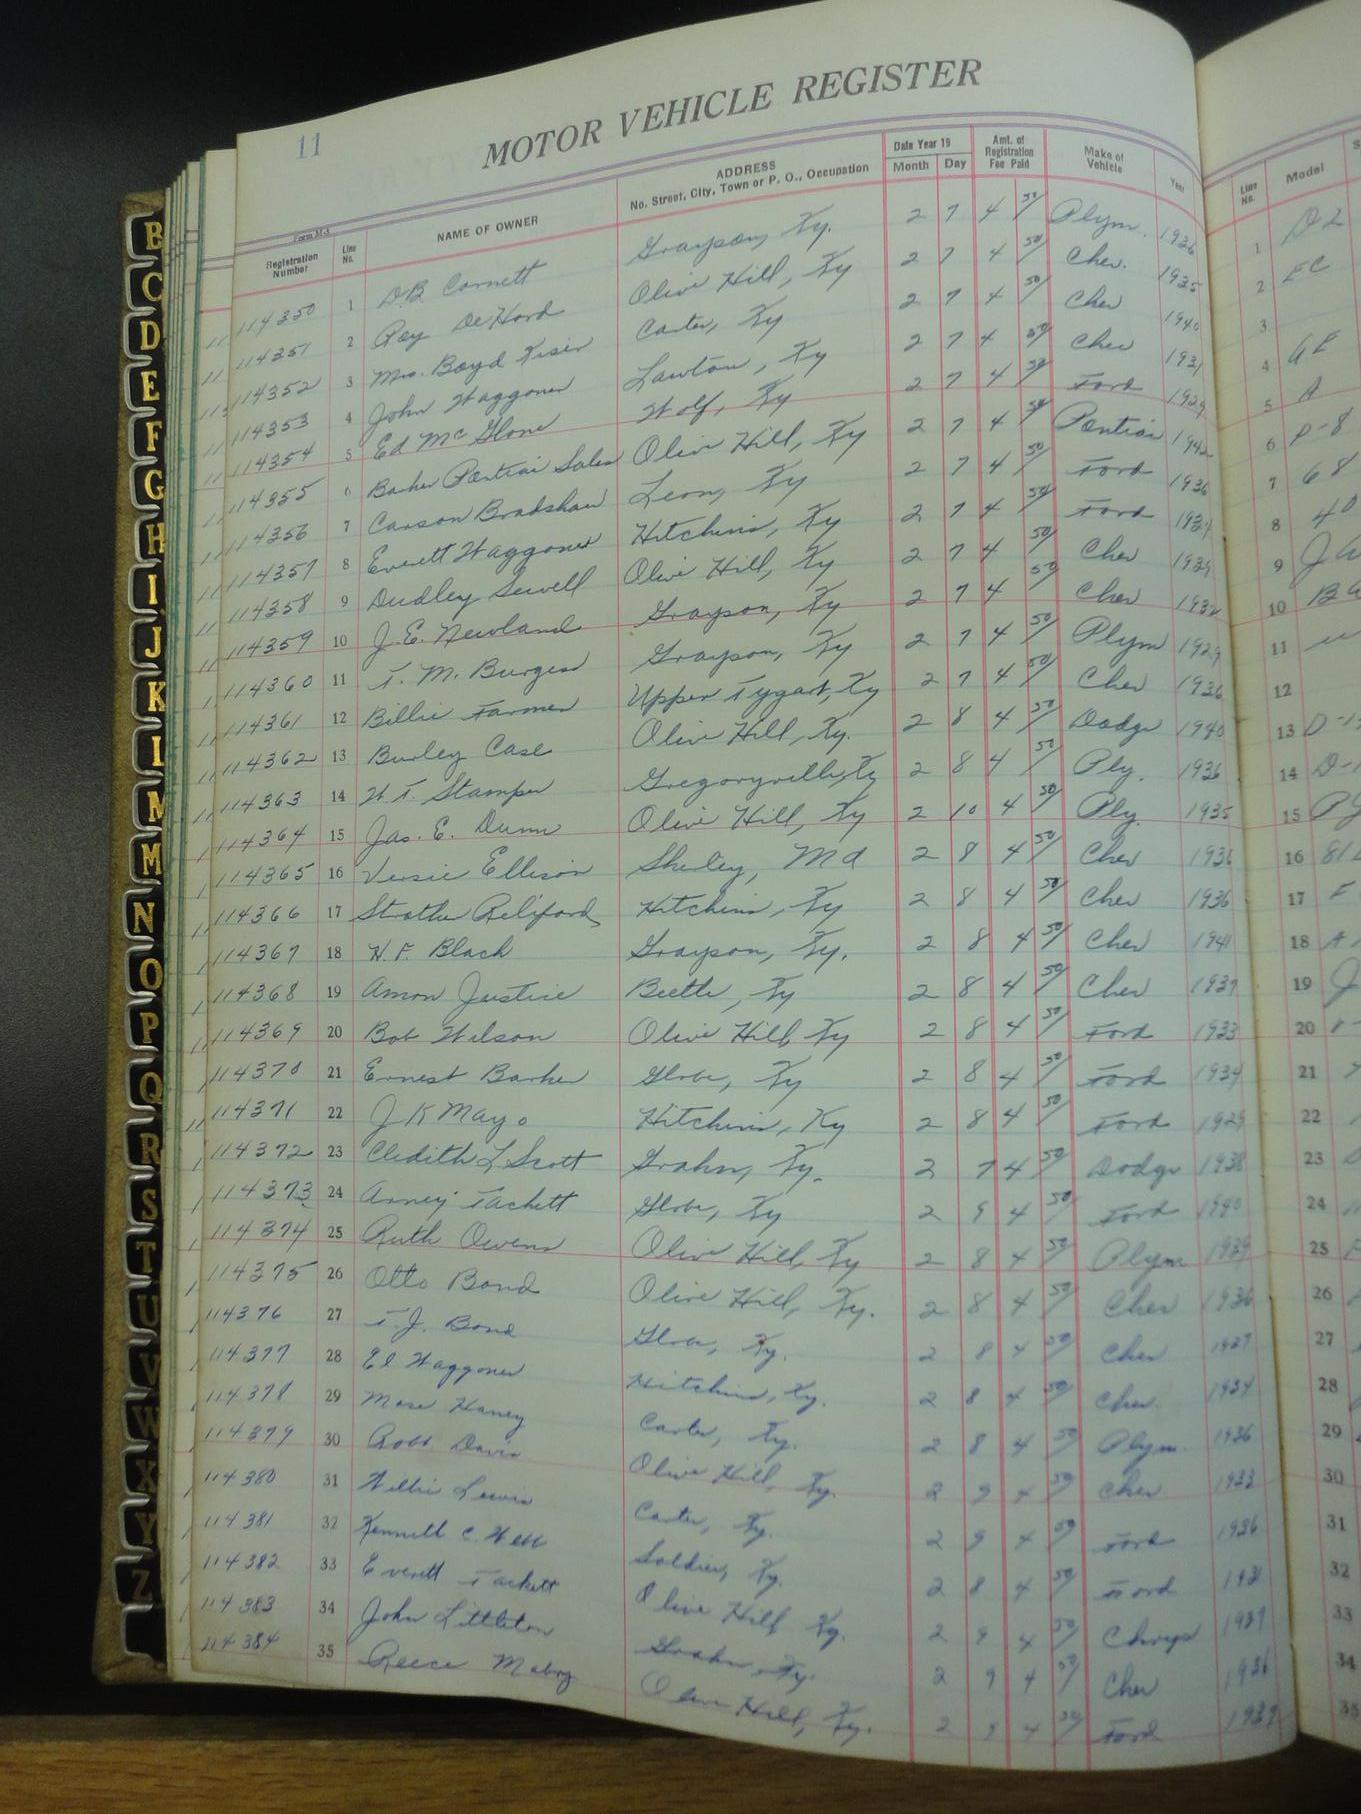 11
MOTOR VEHICLE REGISTER
Form M-1
Registration Number Line No. NAME OF OWNER ADDRESS No. Street, City, Town or P. O., Occupation Date Year 19 Month Day Amt. of Registration Fee Paid Make of Vehicle Year Line No. Model
114350 1 D.B. Cornett Grayson, Ky. 2 7 4 50/ Plym. 1936 1 D2
114351 2 Roy DeHord Olive Hill, Ky 2 7 4 50/ Chev. 1935 2 EC
114352 3 Mrs. Boyd Kiser Carter, Ky 2 7 4 50/ Chev 1940 3
114353 4 John Waggoner Lawton, Ky 2 7 4 50/ Chev 1931 4
114354 5 Ed McGlone Wolf, Ky 2 7 4 50/ Ford 1929 5 A
114355 6 Barker Pontiac Sales Olive Hill, Ky 2 7 4 50/ Pontiac 1942 6 P-8
114356 7 Carson Bradshaw Leon, Ky 2 7 4 50/ Ford 1936 7 68
114357 8 Everett Waggoner Hitchins, Ky 2 7 4 50/ Ford 1934 8 40
114358 9 Dudley Sewell Olive Hill, Ky 2 7 4 50/ Chev 1939 9
114359 10 J.E. Newland Grayson, Ky 2 7 4 50/ Chev 1932 10 BA
114360 11 T. M. Burgess Grayson, Ky 2 7 4 50/ Plym 1929 11
114361 12 Billie Farmer Upper Tygart, Ky 2 7 4 50/ Chev 1936 12
114362 13 Burley Case Olive Hill, Ky. 2 8 4 50/ Dodge 1940 13
114363 14 W.T. Stamper Gregoryville, Ky 2 8 4 50/ Ply. 1936 14
114364 15 Jas. E. Dunn Olive Hill, Ky 2 10 4 50/ Ply. 1935 15
114365 16 Versie Ellison Shirley, Md 2 8 4 50/ Chev 1936 16
114366 17 Hitchins, Ky 2 8 4 50/ Chev 1936 17
114367 18 H.F. Black Grayson, Ky. 2 8 4 50/ Chev 1941 18
114368 19 Amon Justice Beetle, Ky 2 8 4 50/ Chev 1937 19
114369 20 Bob Wilson Olive Hill, Ky 2 8 4 50/ Ford 1933 20
114370 21 Ernest Barker Globe, Ky 2 8 4 50/ Ford 1934 21
114371 22 J K Mayo Hitchins, Ky 2 8 4 50/ Ford 1929 22
114372 23 Cledith L Scott Grahn, Ky. 2 7 4 50/ Dodge 1938 23
114373 24 Arney Tackett Globe, Ky 2 9 4 50/ Ford 1940 24
114374 25 Ruth Owens Olive Hill, Ky 2 8 4 50/ Plym 1939 25
114375 26 Otto Bond Olive Hill, Ky. 2 8 4 50/ Chev 1936 26
114376 27 T.J. Bond Globe, Ky. 2 8 4 50/ Chev 1937 27
114377 28 El Waggoner Hitchins, Ky. 2 8 4 50/ Chev. 1934 28
114378 29 Mose Haney Carter, Ky. 2 8 4 50/ Plym. 1936 29
114379 30 Robt Davis Olive Hill, Ky. 2 9 4 50/ Chev 1933 30
114380 31 Willie Lewis Carter, Ky. 2 9 4 50/ Ford 1936 31
114381 32 Kennell C. Webb Soldier, Ky. 2 8 4 50/ Ford 1931 32
114382 33 Everett Tackett Olive Hill Ky. 2 9 4 50/ Chrys 1937 33
114383 34 John Littleton Grahn, Ky. 2 9 4 50/ Chev 1936 34
114384 35 Reece Mabry Olive Hill, Ky. 2 9 4 50/ Ford 1937 35
B
C
D
E
F
G
H
I
J
K
L
M
M
N
O
P
Q
R
S
T
U
V
W
X
Y
Z